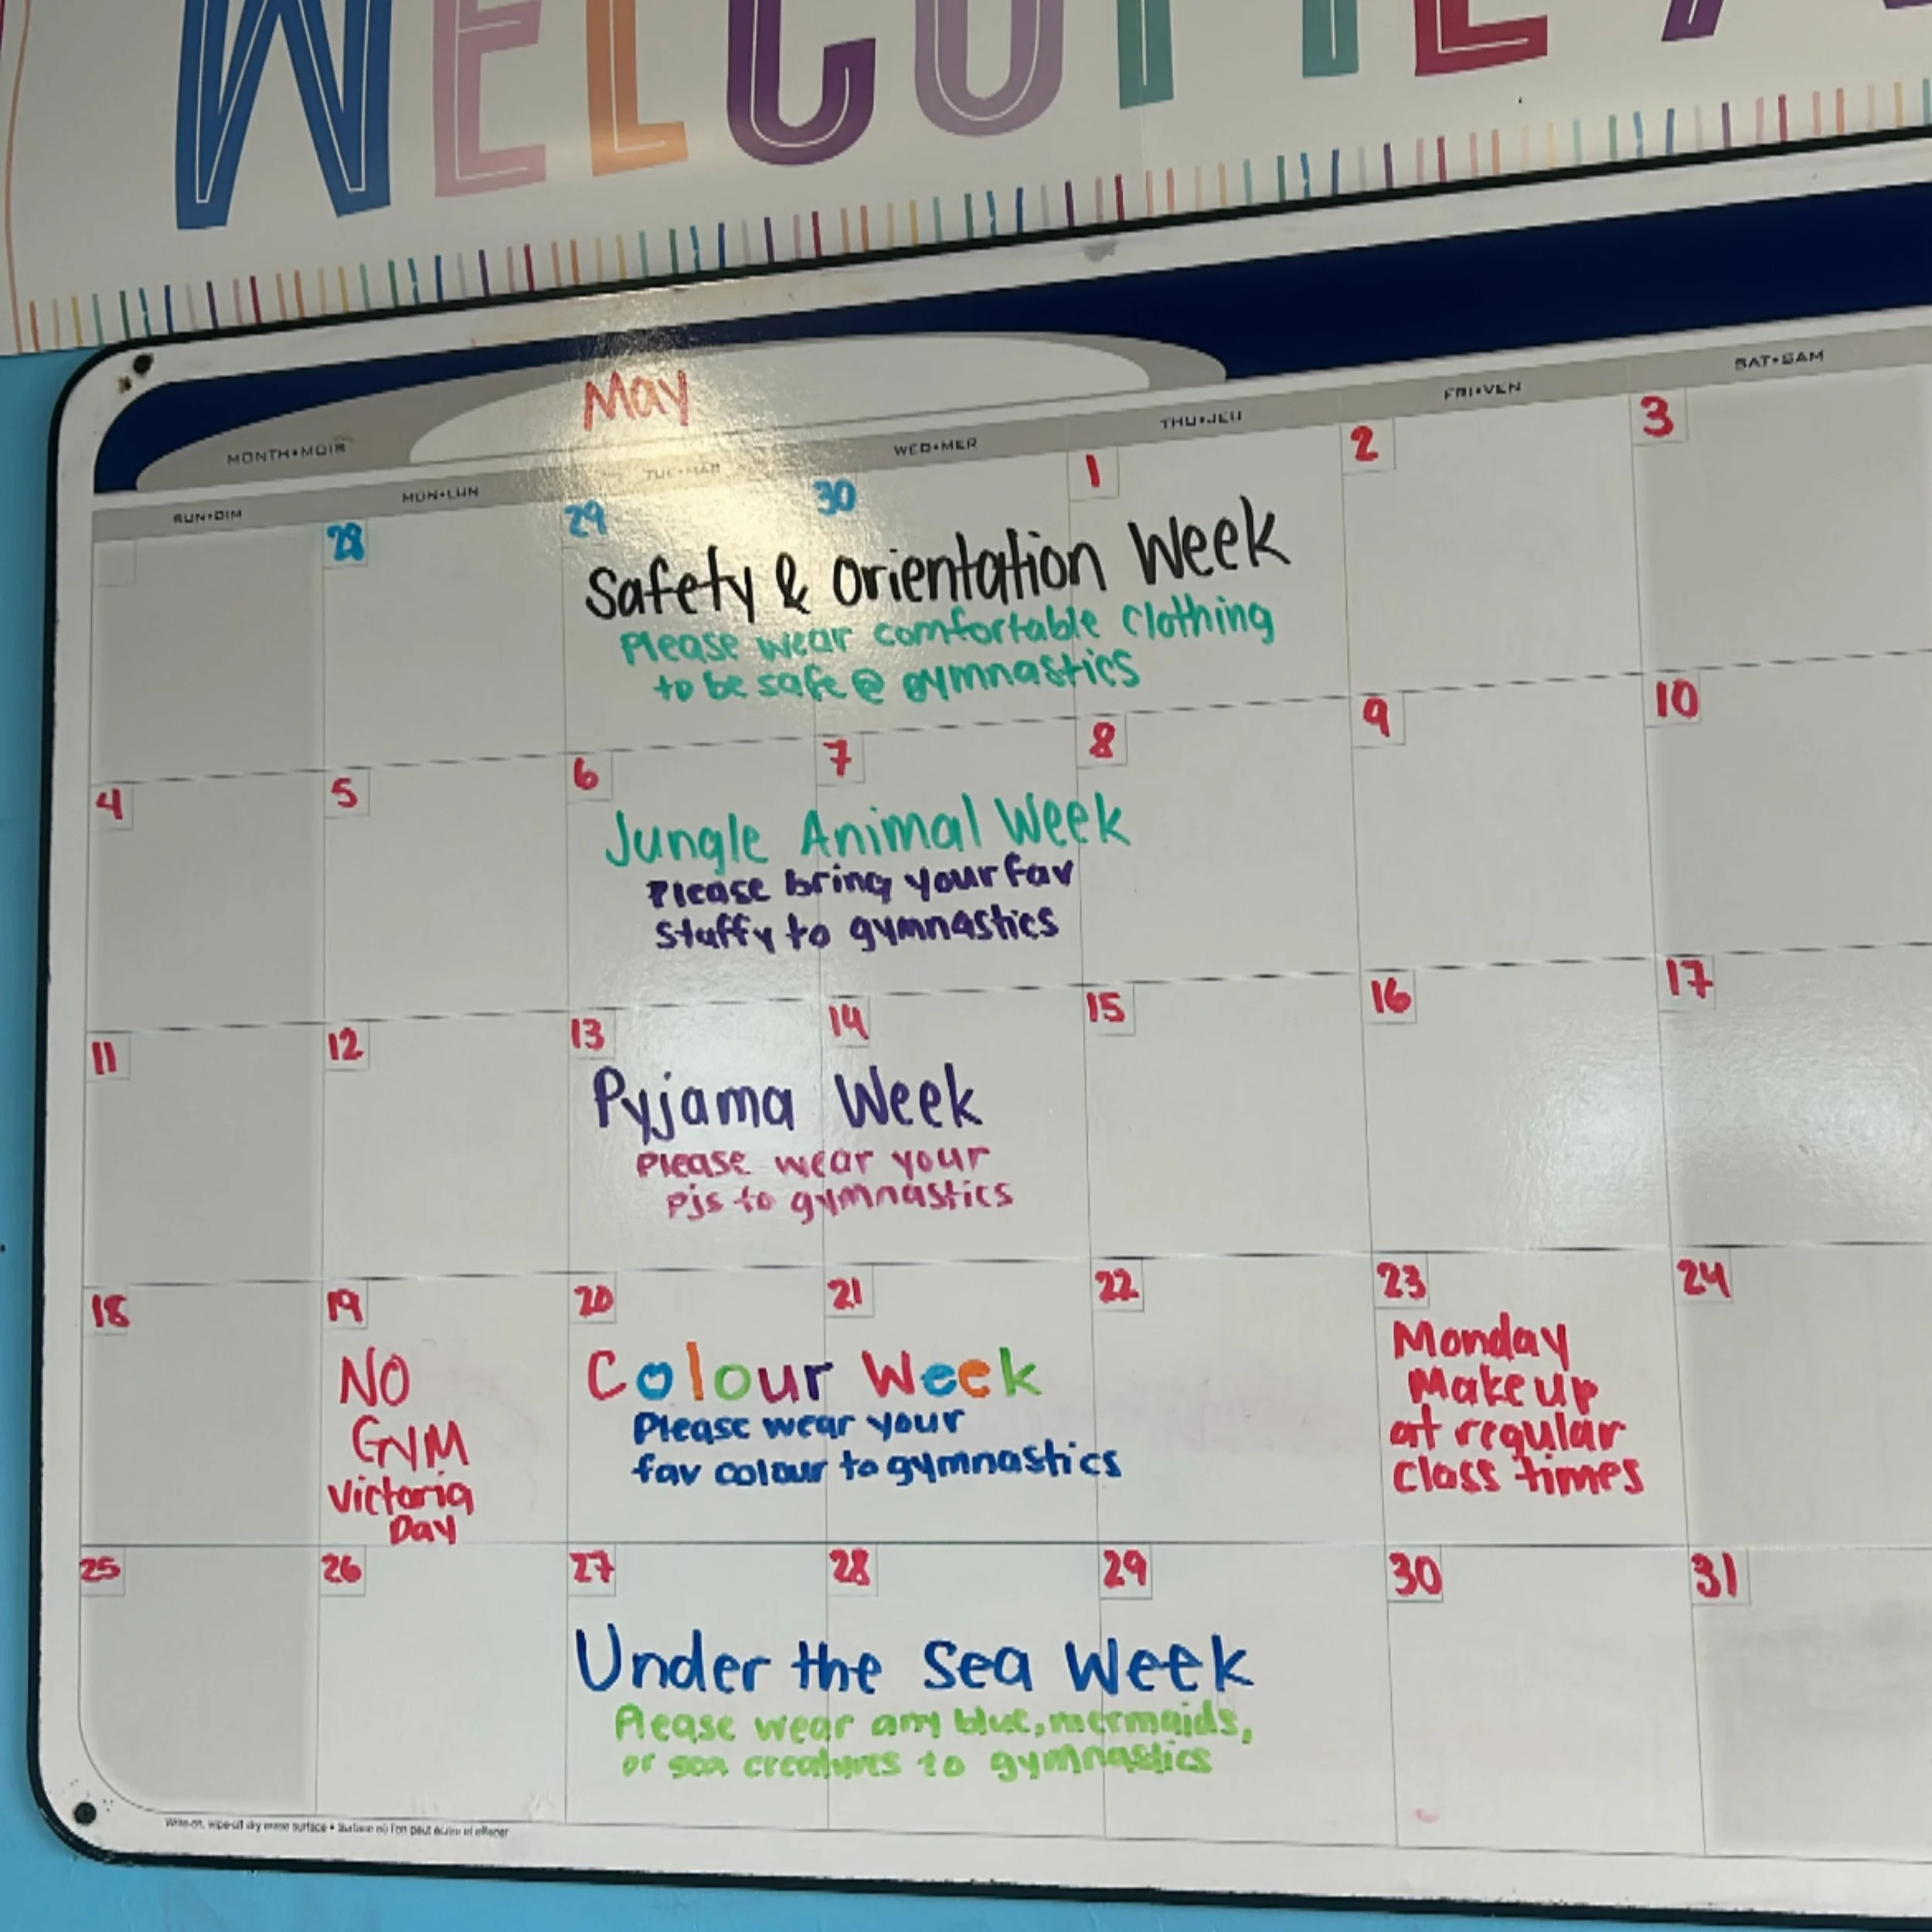 WELCOME
May
MONTH•MOIS
SUN•DIM
MON•LUN
TUE•MAR
WED•MER
THU•JEU
FRI•VEN
SAT•SAM
28
29
30
1
2
3
Safety & Orientation Week
Please wear comfortable clothing
to be safe @ gymnastics
4
5
6
7
8
9
10
Jungle Animal Week
Please bring your fav
stuffy to gymnastics
11
12
13
14
15
16
17
Pyjama Week
Please wear your
pjs to gymnastics
18
19
20
21
22
23
24
NO
GYM
Victoria
Day
Colour Week
Please wear your
fav colour to gymnastics
Monday
Make up
at regular
class times
25
26
27
28
29
30
31
Under the Sea Week
Please wear any blue, mermaids,
or sea creatures to gymnastics
Write-on, wipe-off dry erase surface • Surface où l'on peut écrire et effacer